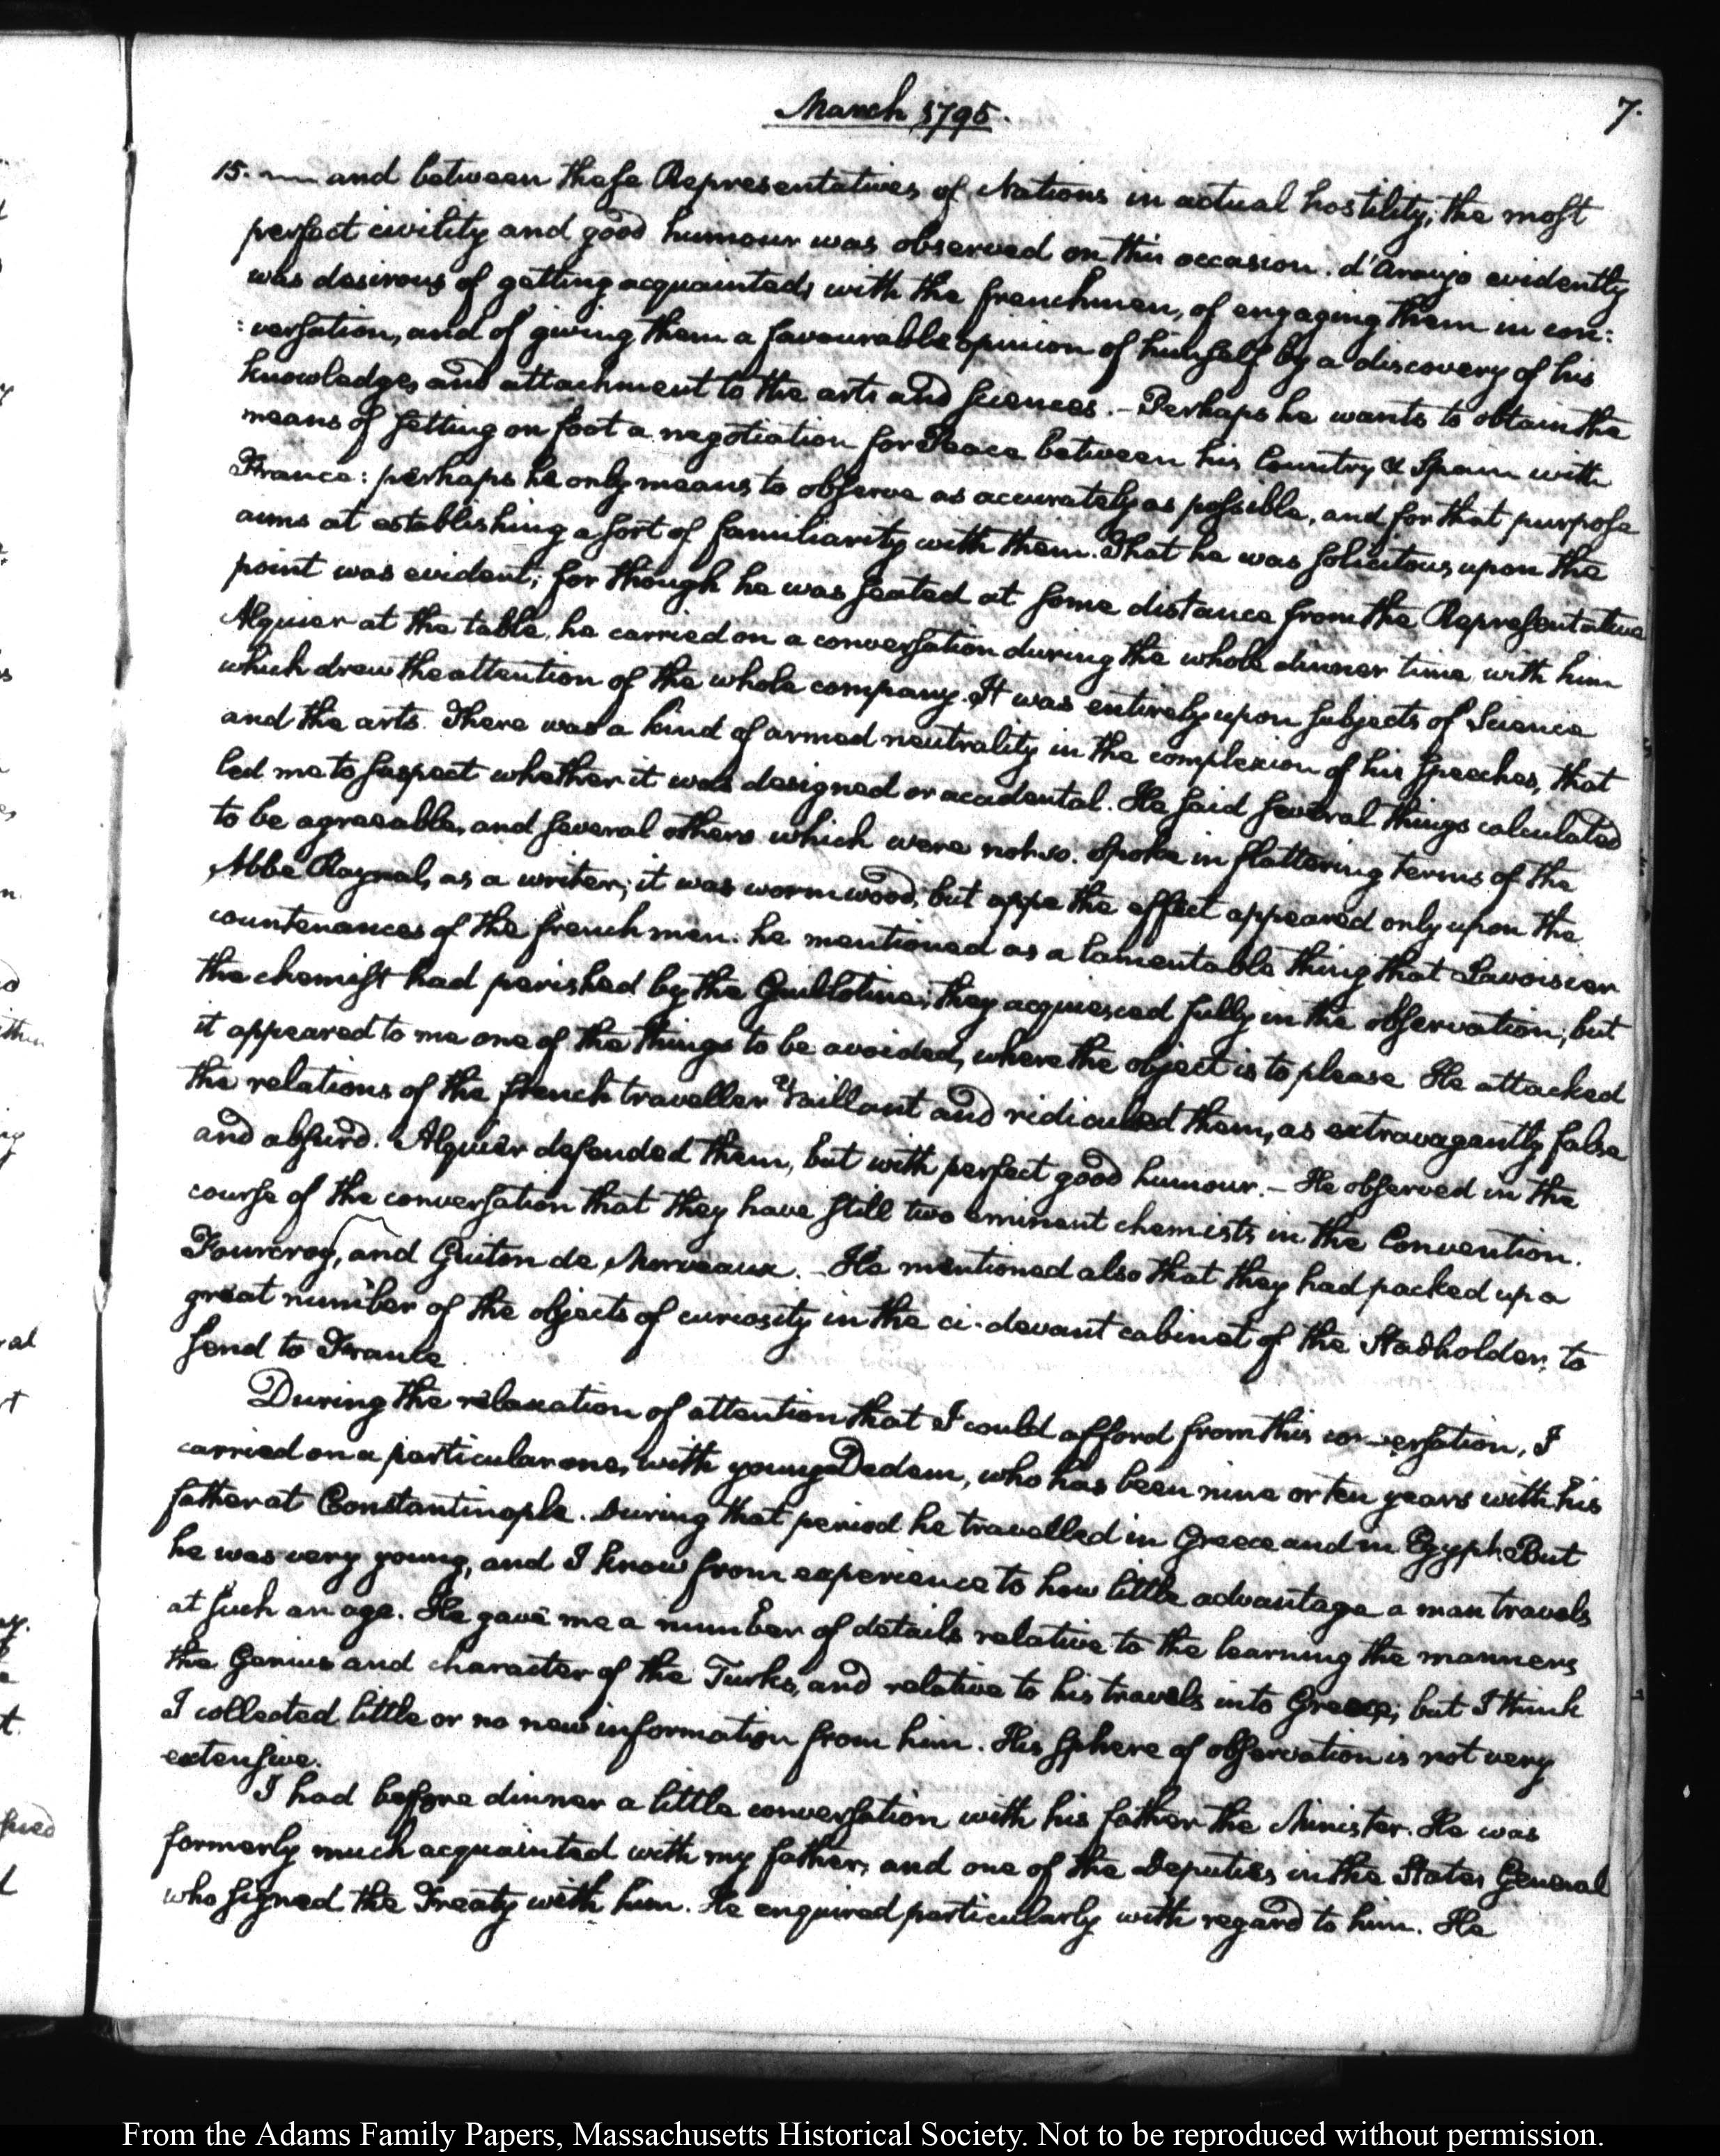 March 1795.
7.
15. and between these Representatives of Nations in actual hostility, the most
perfect civility and good humour was observed on this occasion. d'Araujo evidently
was desirous of getting acquainted with the frenchmen, of engaging them in con:
:versation, and of giving them a favourable opinion of himself by a discovery of his
knowledge, and attachment to the arts and sciences. — Perhaps he wants to obtain the
means of setting on foot a negotiation for Peace between his Country & Spain with
France: perhaps he only means to observe as accurately as possible, and for that purpose
aims at establishing a sort of familiarity with them. That he was solicitous upon the
point was evident; for though he was seated at some distance from the Representative
Alquier at the table, he carried on a conversation during the whole dinner time with him
which drew the attention of the whole company. It was entirely upon subjects of Science
and the arts. There was a kind of armed neutrality in the complexion of his speeches, that
led me to suspect whether it was designed or accidental. He said several things calculated
to be agreeable, and several others which were not so. Spoke in flattering terms of the
Abbe Raynal, as a writer; it was wormwood, but appe the effect appeared only upon the
countenances of the frenchmen. he mentioned as a lamentable thing that Lavoisier
the chemist had perished by the Guillotine; they acquiesced fully in the observation; but
it appeared to me one of the things to be avoided, where the object is to please. He attacked
the relations of the french traveller Vaillant and ridiculed them, as extravagantly false
and absurd. Alquier defended them, but with perfect good humour. — He observed in the
course of the conversation that they have still two eminent chemists in the Convention.
Fourcroy, and Guiton de Morveaux. — He mentioned also that they had packed up a
great number of the objects of curiosity in the ci-devant cabinet of the Stadholder, to
send to France.
During the relaxation of attention that I could afford from this conversation, I
carried on a particular one, with young Dedem, who has been nine or ten years with his
father at Constantinople. During that period he travelled in Greece and in Egypt. But
he was very young, and I know from experience to how little advantage a man travels
at such an age. He gave me a number of details relative to the learning the manners
the Genius and character of the Turks, and relative to his travels into Greece; but I think
I collected little or no new information from him. His sphere of observation is not very
extensive.
I had before dinner a little conversation with his father the Minister. He was
formerly much acquainted with my father, and one of the Deputies in the States General
who signed the Treaty with him. He enquired particularly with regard to him. He
From the Adams Family Papers, Massachusetts Historical Society. Not to be reproduced without permission.